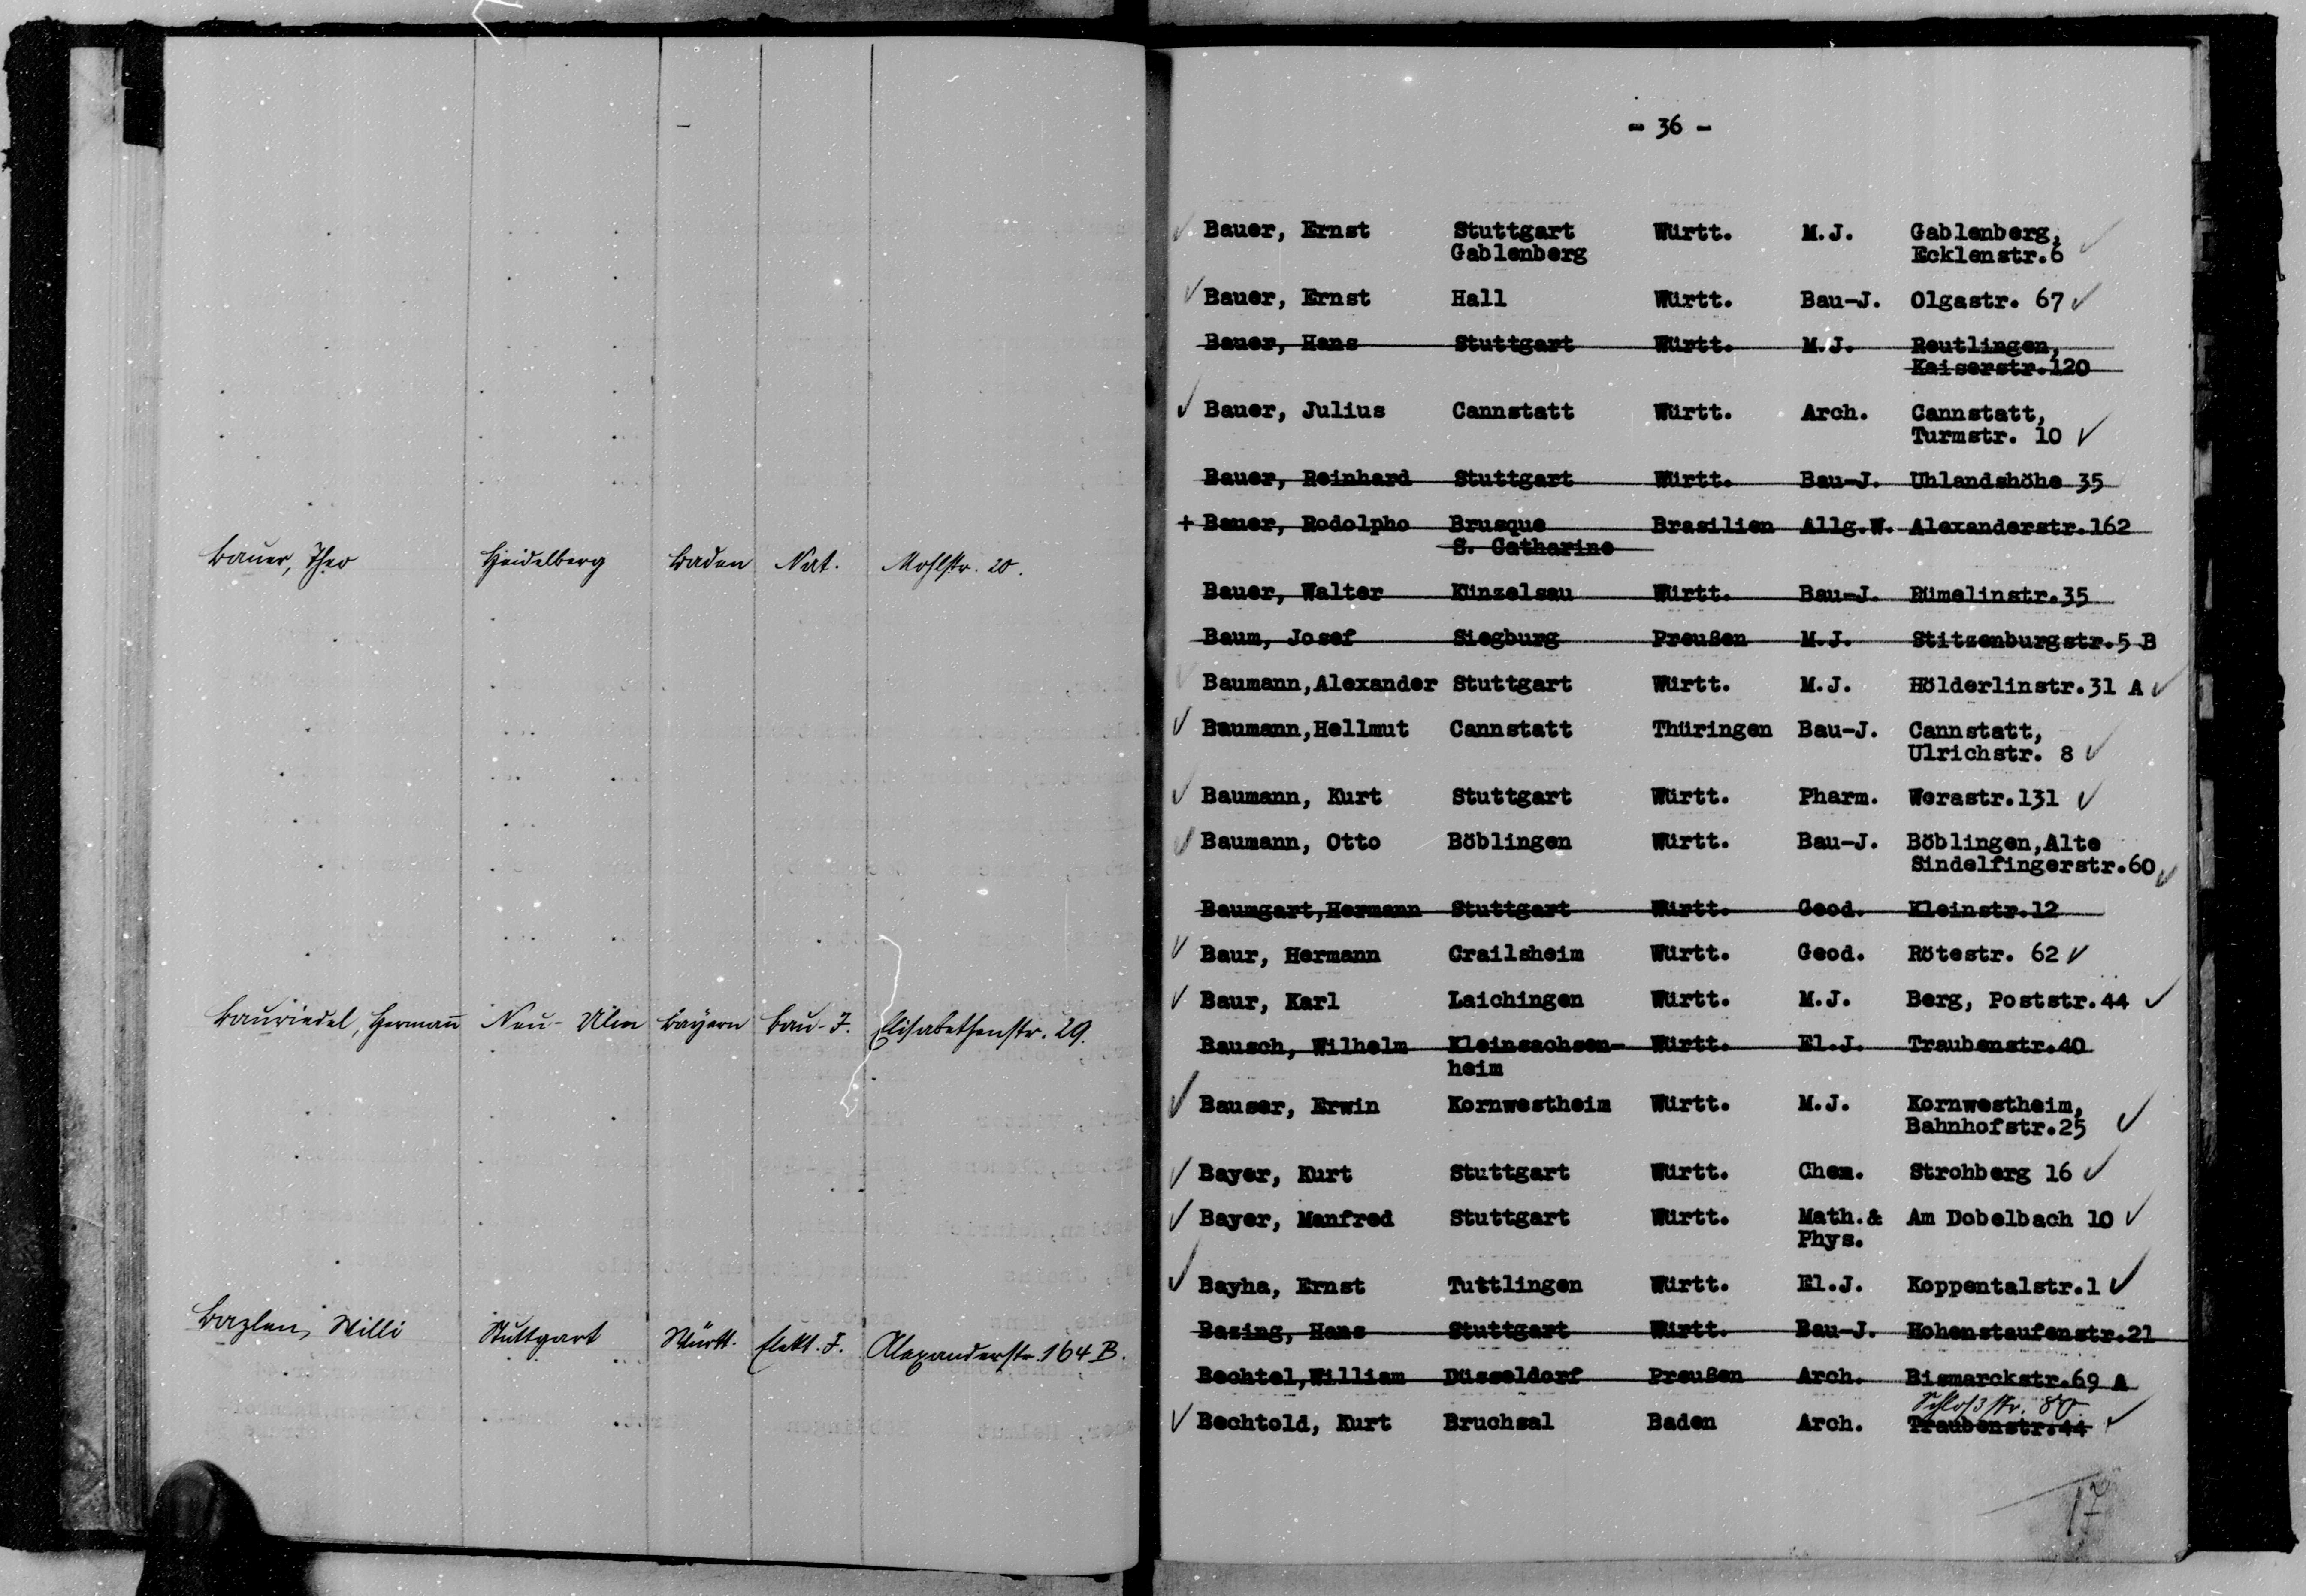 Bauer, Theo Heidelberg Baden Nat. Mohlstr. 20.
Bauriedel, Hermann Neu-Ulm Bayern Bau-J. Elisabethenstr. 29.
Bazlen, Willi Stuttgart Württ. Elekt. J. Alexanderstr. 164 B.
- 36 -
Bauer, Ernst Stuttgart Württ. M.J. Gablenberg,
Gablenberg Ecklenstr.6
Bauer, Ernst Hall Württ. Bau-J. Olgastr. 67
Bauer, Hans Stuttgart Württ. M.J. Reutlingen,
Kaiserstr.120
Bauer, Julius Cannstatt Württ. Arch. Cannstatt,
Turmstr. 10
Bauer, Reinhard Stuttgart Württ. Bau-J. Uhlandshöhe 35
+ Bauer, Rodolpho Brusque Brasilien Allg.W. Alexanderstr.162
S. Catharine
Bauer, Walter Künzelsau Württ. Bau-J. Rümelinstr.35
Baum, Josef Siegburg Preußen M.J. Stitzenburgstr.5 B
Baumann,Alexander Stuttgart Württ. M.J. Hölderlinstr.31 A
Baumann,Hellmut Cannstatt Thüringen Bau-J. Cannstatt,
Ulrichstr. 8
Baumann, Kurt Stuttgart Württ. Pharm. Werastr.131
Baumann, Otto Böblingen Württ. Bau-J. Böblingen,Alte
Sindelfingerstr.60
Baumgart,Hermann Stuttgart Württ. Geod. Kleinstr.12
Baur, Hermann Crailsheim Württ. Geod. Rötestr. 62
Baur, Karl Laichingen Württ. M.J. Berg, Poststr.44
Bausch, Wilhelm Kleinsachsen- Württ. El.J. Traubenstr.40
heim
Bauser, Erwin Kornwestheim Württ. M.J. Kornwestheim,
Bahnhofstr.25
Bayer, Kurt Stuttgart Württ. Chem. Strohberg 16
Bayer, Manfred Stuttgart Württ. Math.& Am Dobelbach 10
Phys.
Bayha, Ernst Tuttlingen Württ. El.J. Koppentalstr.1
Bazing, Hans Stuttgart Württ. Bau-J. Hohenstaufenstr.21
Bechtel,William Düsseldorf Preußen Arch. Bismarckstr.69 A
Schloßstr. 80.
Bechtold, Kurt Bruchsal Baden Arch. Traubenstr.44
17